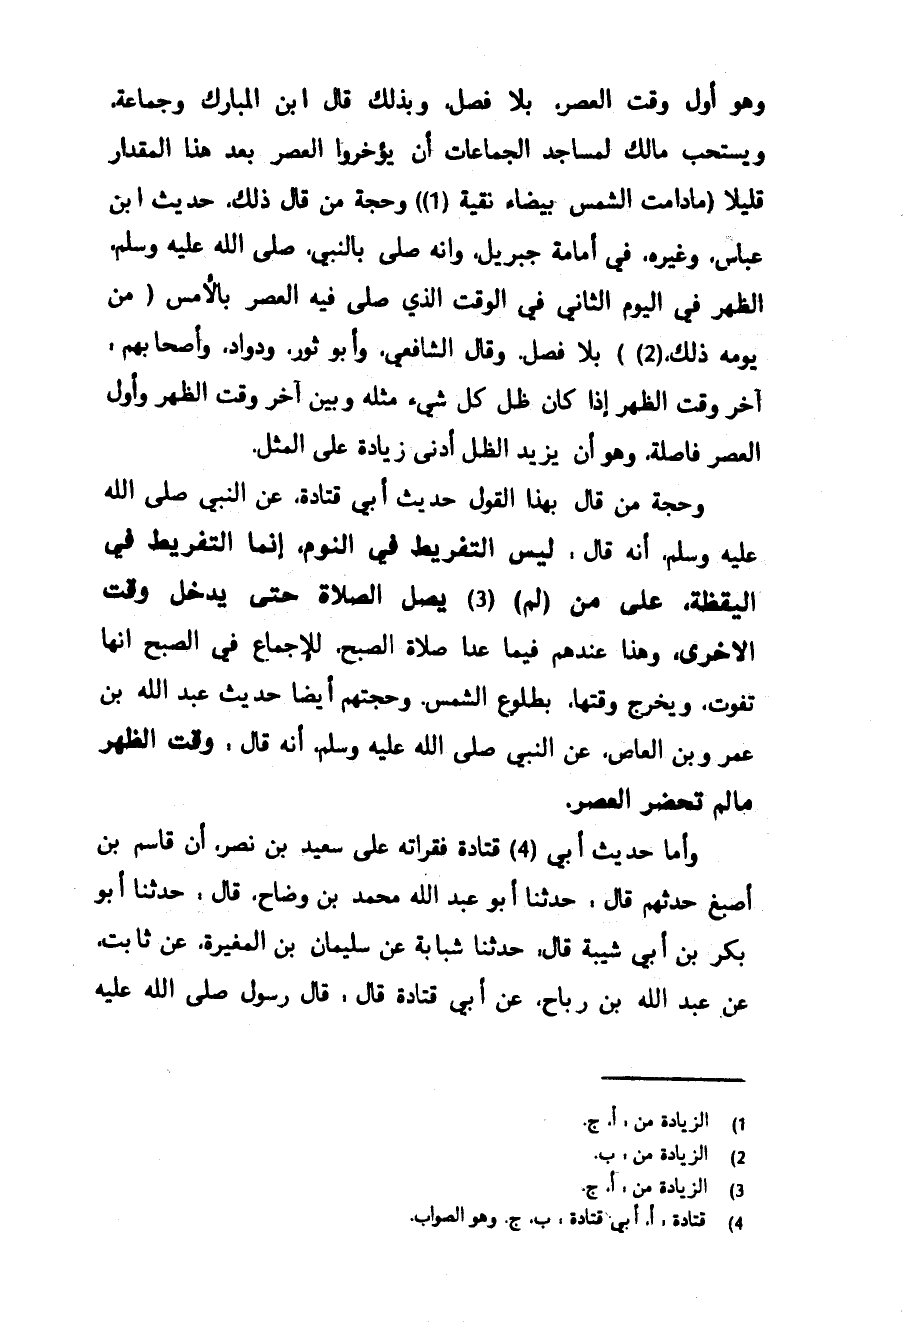 وهو أول وقت العصر، بلا فصل، وبذلك قال ابن المبارك وجماعة،
ويستحب مالك لمساجد الجماعات أن يؤخروا العصر بعد هذا المقدار
قليلا (مادامت الشمس بيضاء نقية (1)) وحجة من قال ذلك، حديث ابن
عباس، وغيره، في أمامة جبريل، وانه صلى بالنبي، صلى الله عليه وسلم،
الظهر في اليوم الثاني في الوقت الذي صلى فيه العصر بالأمس ( من
يومه ذلك،(2) ) بلا فصل. وقال الشافعي، وأبو ثور، ودواد، وأصحابهم :
آخر وقت الظهر إذا كان ظل كل شيء مثله وبين آخر وقت الظهر وأول
العصر فاصلة، وهو أن يزيد الظل أدنى زيادة على المثل.
وحجة من قال بهذا القول حديث أبي قتادة، عن النبي صلى الله
عليه وسلم، أنه قال : ليس التفريط في النوم، إنما التفريط في
اليقظة، على من (لم) (3) يصل الصلاة حتى يدخل وقت
الاخرى، وهذا عندهم فيما عدا صلاة الصبح، للإجماع في الصبح انها
تفوت، ويخرج وقتها، بطلوع الشمس. وحجتهم أيضا حديث عبد الله بن
عمر وبن العاص، عن النبي صلى الله عليه وسلم، أنه قال : وقت الظهر
مالم تحضر العصر.
وأما حديث أبي (4) قتادة فقراته على سعيد بن نصر، أن قاسم بن
أصبغ حدثهم قال : حدثنا أبو عبد الله محمد بن وضاح، قال : حدثنا أبو
بكر بن أبي شيبة قال: حدثنا شبابة عن سليمان بن المغيرة، عن ثابت،
عن عبد الله بن رباح، عن أبي قتادة قال : قال رسول صلى الله عليه
1) الزيادة من : أ، ج.
2) الزيادة من : ب.
3) الزيادة من : أ، ج.
4) قتادة : أ، أبي قتادة : ب، ج. وهو الصواب.